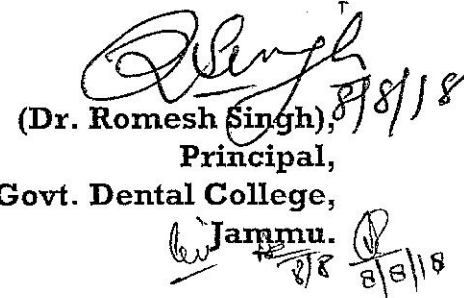 RSingh
8/8/18
(Dr. Romesh Singh),
Principal,
Govt. Dental College,
Jammu.
8/8
8/8/18